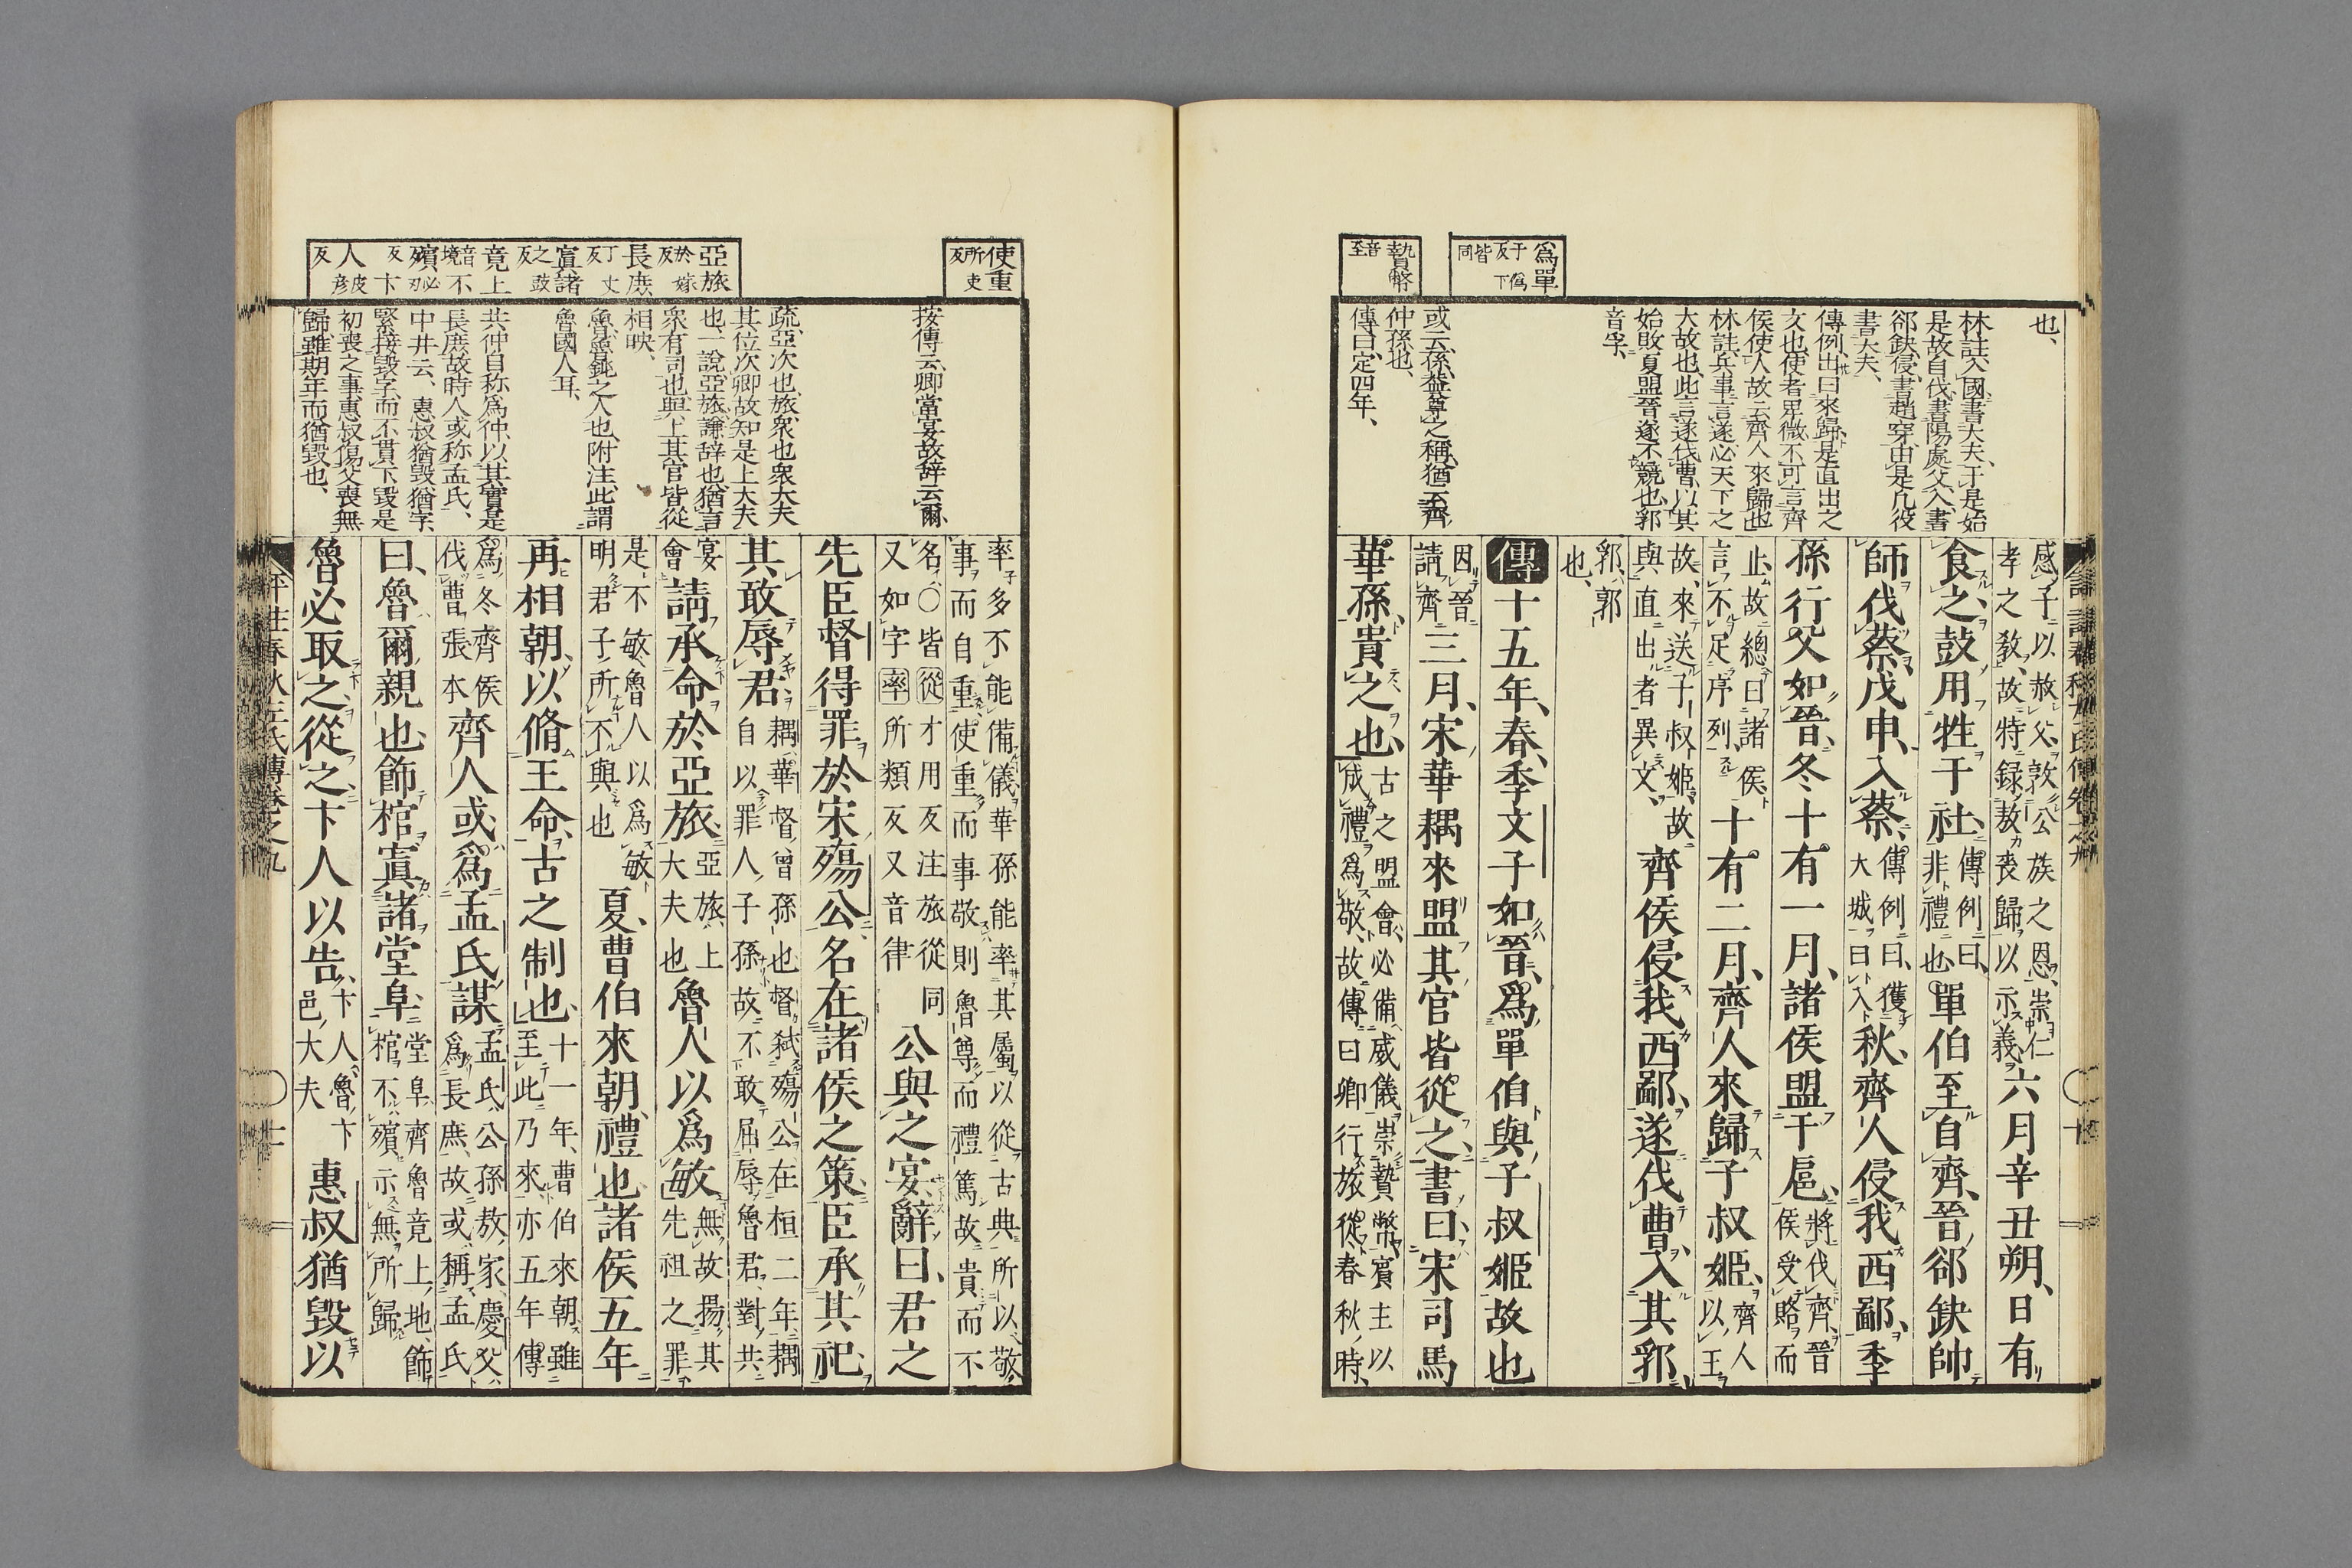 爲單
于僞反下皆同
贄幣
音至
也、
林註、入國書大夫、于是始
是故自伐書陽處父、入書
郤缺、侵書趙穿、由是凡役
書大夫、
傳例、出曰來歸、是直出之
文也、使者卑微不可言齊
侯使人、故云齊人來歸也
林註、兵事言遂、必天下之
大故也、此言遂伐曹、以其
始敗夏盟、晉遂不競也、郛
音孚、
或云、孫、蓋尊之稱、猶云齊
仲孫也、
傳曰、定四年、
感子以赦父、敦公族之恩、崇仁孝之敎、故特録敖喪歸以示義、六月辛丑朔、日有
食之、鼓用牲于社、傳例曰、非禮也單伯至自齊、晉郤缺帥
師伐蔡、戊申、入蔡、傳例曰、獲大城曰入秋、齊人侵我西鄙、季
孫行父如晉、冬十有一月、諸侯盟于扈、將伐齊、晉侯受賂而
止、故總曰諸侯、言不足序列、十有二月、齊人來歸子叔姬、齊人以王
故、來送子叔姬、故與直出者異文、齊侯侵我西鄙、遂伐曹、入其郛、
郛、郭也、
傳十五年、春、季文子如晉、爲單伯與子叔姬故也
因晉請齊三月、宋華耦來盟、其官皆從之、書曰、宋司馬
華孫、貴之也、古之盟會、必備威儀、崇贄幣、賓主以成禮爲敬、故傳曰卿行旅從、春秋時、
使重
所吏反
亞旅
於嫁反
長庶
丁丈反
寘諸
之豉反
竟上
音境
不殯
必刃反
卞人
皮彦反
按傳云、卿當宴、故辞云爾、
疏、亞次也、旅、衆也、衆大夫
其位次卿、故知是上大夫
也、一說、亞旅、謙辞也、猶言
衆有司也、與上其官皆從
相映、
魚、魯鈍之人也、附注、此謂
魯國人耳、
共仲自称爲仲、以其實是
長庶、故時人或称孟氏、
中井云、惠叔猶毀、猶字
緊接毀字、而不貫下、毀是
初喪之事、惠叔傷父喪無
歸、雖期年而猶毀也、
率多不能備儀、華孫能率其屬、以從古典、所以敬事而自重、使重而事敬、則魯尊而禮篤、故貴而不
名、○皆從才用反注旅從同又如字率所類反又音律公與之宴、辭曰、君之
先臣督得罪於宋殤公、名在諸侯之策、臣承其祀、
其敢辱君、耦、華督曾孫也、督弑殤公、在桓二年、耦自以罪人子孫、故不敢屈辱魯君、對共
宴會請承命於亞旅、亞旅、上大夫也魯人以爲敏、無故揚其先祖之罪、
是不敏、魯人以爲敏、明君子所不與也夏、曹伯來朝、禮也、諸侯五年
再相朝、以脩王命、古之制也、十一年、曹伯來朝、雖至此乃來、亦五年、傳
爲冬齊侯伐曹張本齊人或爲孟氏謀、孟氏、公孫敖家、慶父爲長庶、故或稱孟氏、
曰、魯爾親也、飾棺寘諸堂阜、堂阜、齊魯竟上地、飾棺不殯、示無所歸
魯必取之、從之、卞人以告、卞人、魯卞邑大夫惠叔猶毀以